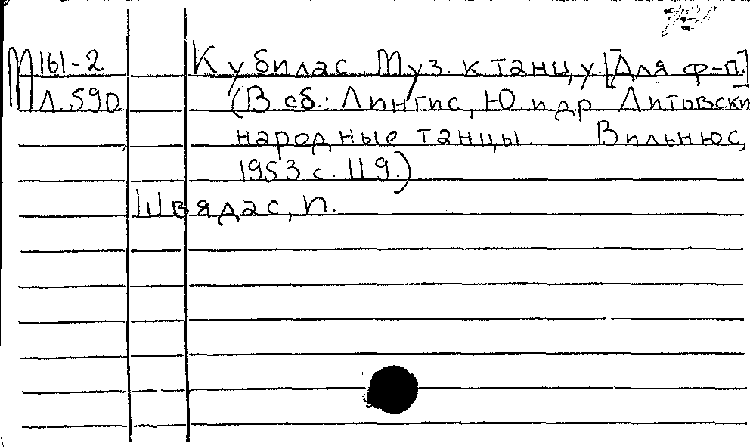 М161-2 Кубилас. Муз. к танцу [Для ф-п.]
Л.590 (В сб.: Лингис, Ю и др. Литовски
народные танцы. Вильнюс,
1953 с. 119.)
Швядас, П.